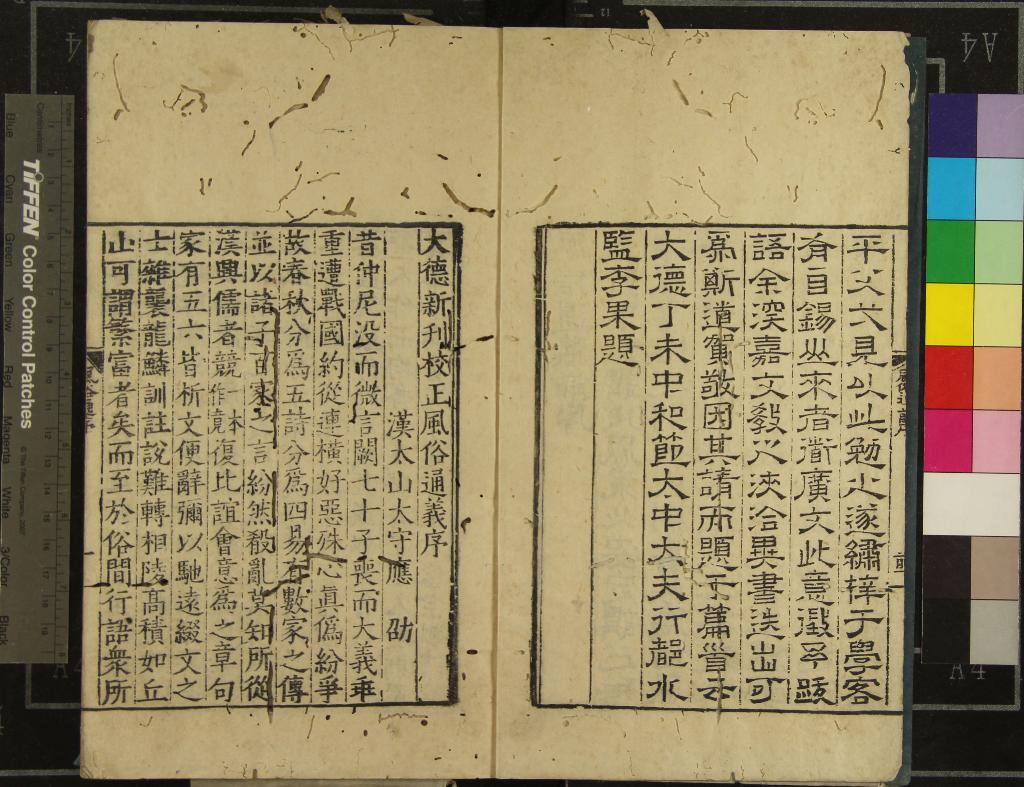 平父大見以此勉之遂繡梓于學客
有自錫山來者衛廣文此意徵予跋
語余深嘉文教之浹洽異書迭出可
爲斯道賀敬因其請而題于篇首云
大德丁未中和節太中大夫行都水
監李果題
大德新刊校正風俗通義序
漢太山太守應 劭
昔仲尼没而微言闕七十子喪而大義乖
重遭戰國約從連橫好惡殊心真僞紛爭
故春秋分爲五詩分爲四易有數家之傳
並以諸子百家之言紛然殽亂莫知所從
漢興儒者競一本作竟復比誼會意爲之章句
家有五六皆析文便辭彌以馳遠綴文之
士雜襲龍鱗訓註說難轉相陵髙積如丘
山可謂繁富者矣而至於俗間行語衆所
TIFFEN Color Control Patches
Blue
Cyan
Green
Yellow
Red
Magenta
White
3/Color
Black
A4